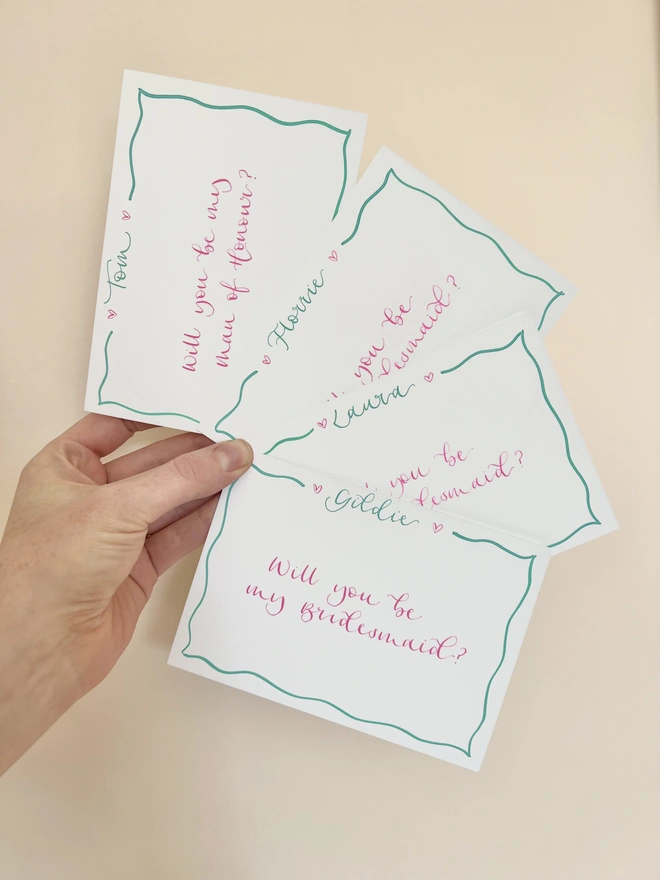 Tom
Will you be my
man of Honour?
Florrie
you be
desmaid?
Laura
you be
desmaid?
Goldie
Will you be
my Bridesmaid?